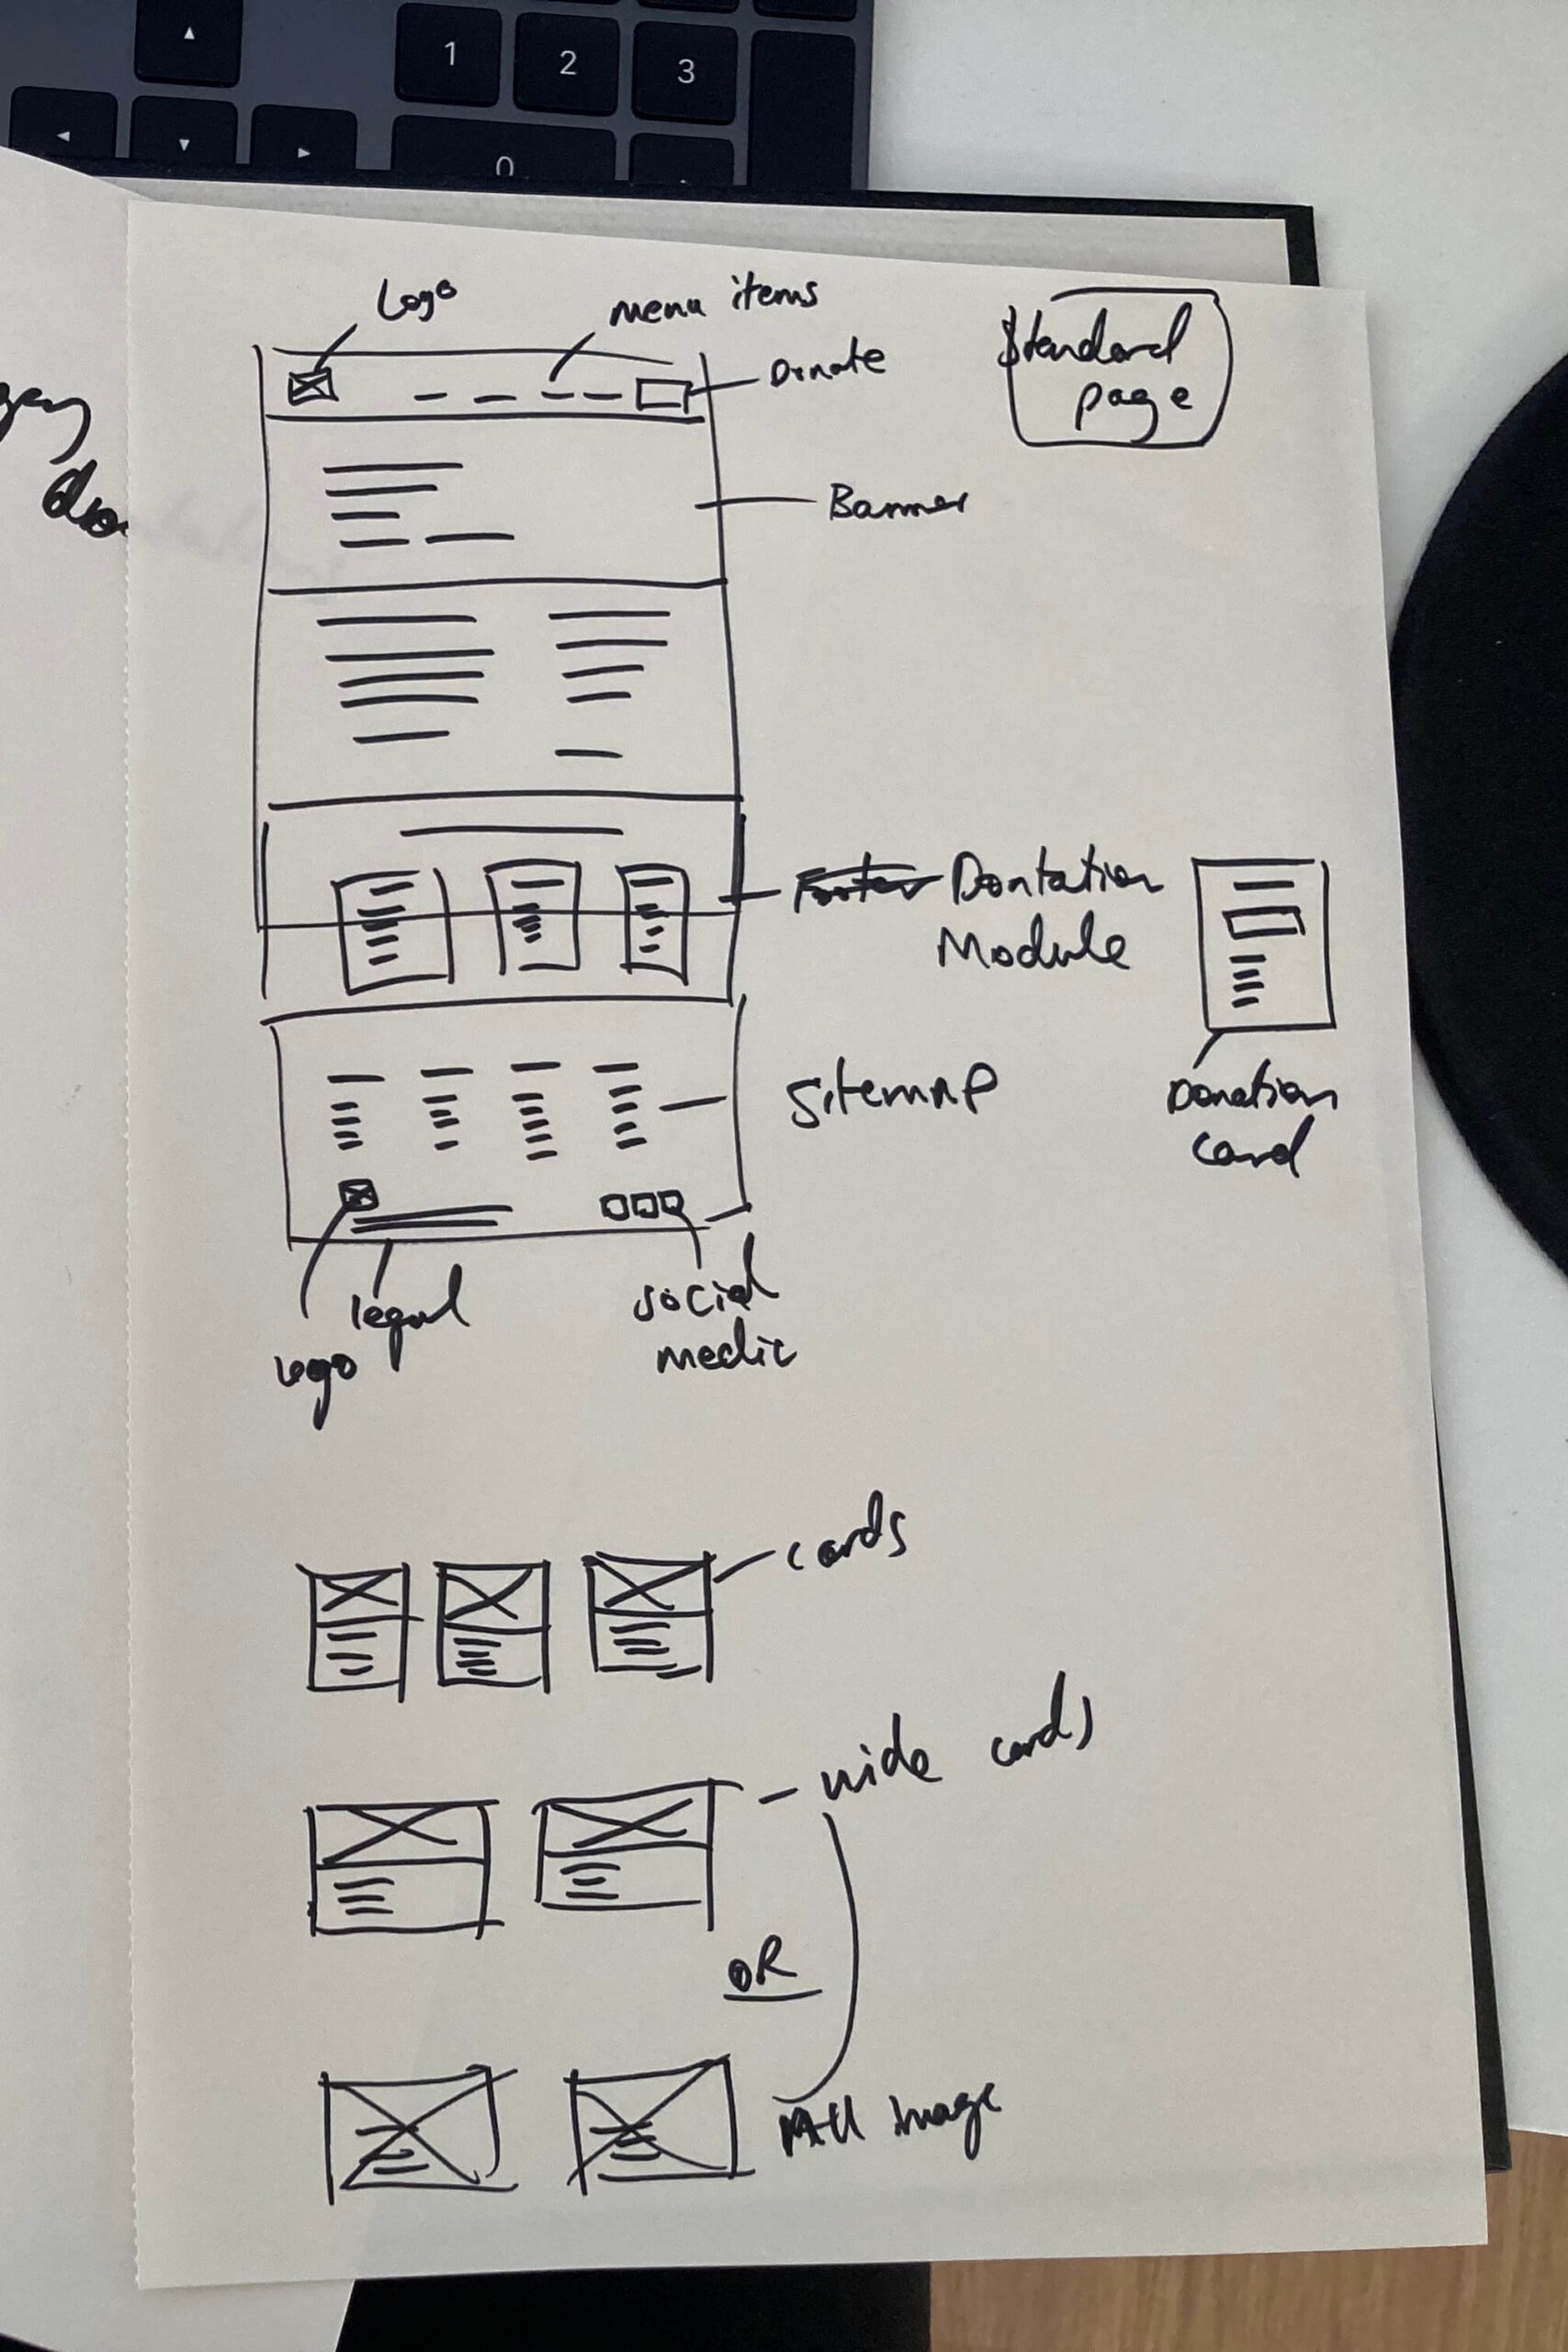 1
2
3
0
Logo
menu items
Donate
Standard
page
Banner
Footer Dontation
Module
Donation
card
Sitemap
logo
legal
social
media
cards
wide cards
OR
All image